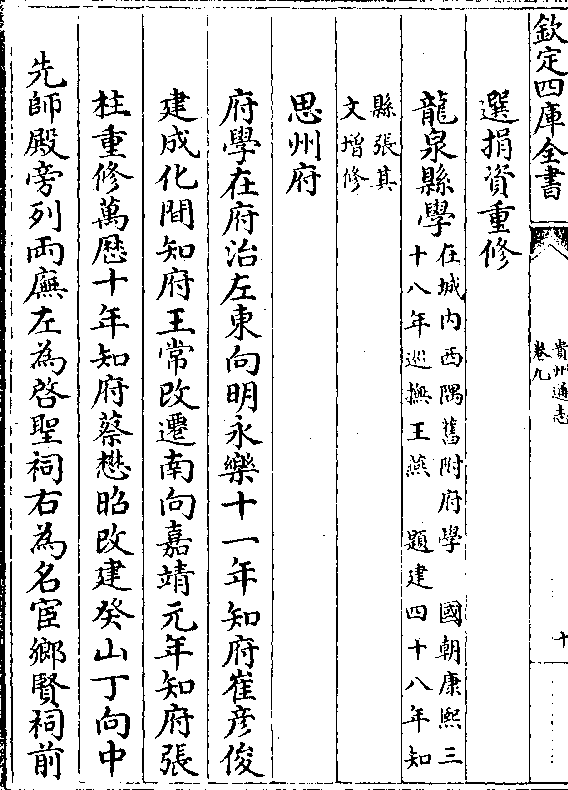 欽定四庫全書
貴州通志
卷九
十
選捐資重修
龍泉縣學
在城内西隅舊附府學 國朝康熙三
十八年巡撫王燕 題建四十八年知
縣張其
文增修
思州府
府學在府治左東向明永樂十一年知府崔彦俊
建成化間知府王常改遷南向嘉靖元年知府張
柱重修萬歷十年知府蔡懋昭改建癸山丁向中
先師殿旁列兩廡左為啓聖祠右為名宦鄉賢祠前